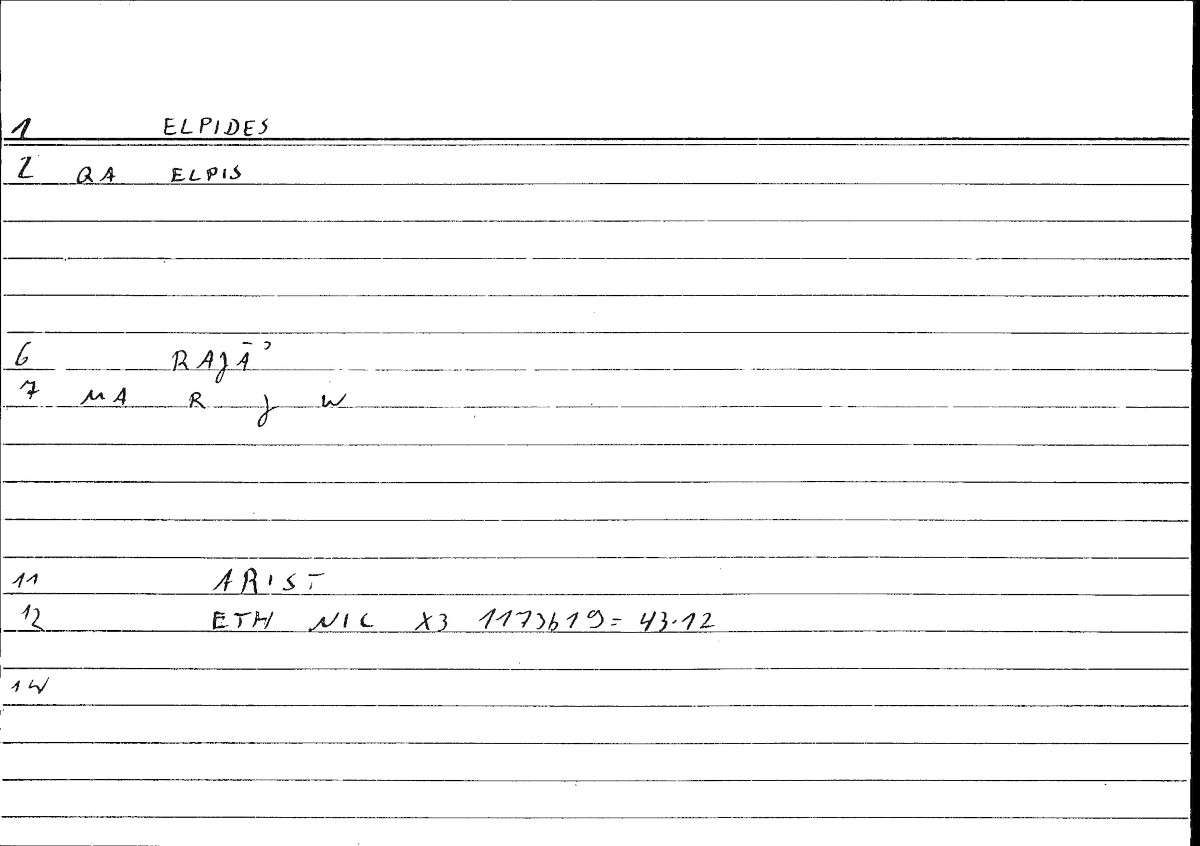 1 ELPIDES
2 QA ELPIS
6 RAJĀʾ
7 MA R J W
11 ARIST
12 ETH NIC X3 1173b19= 43.12
14